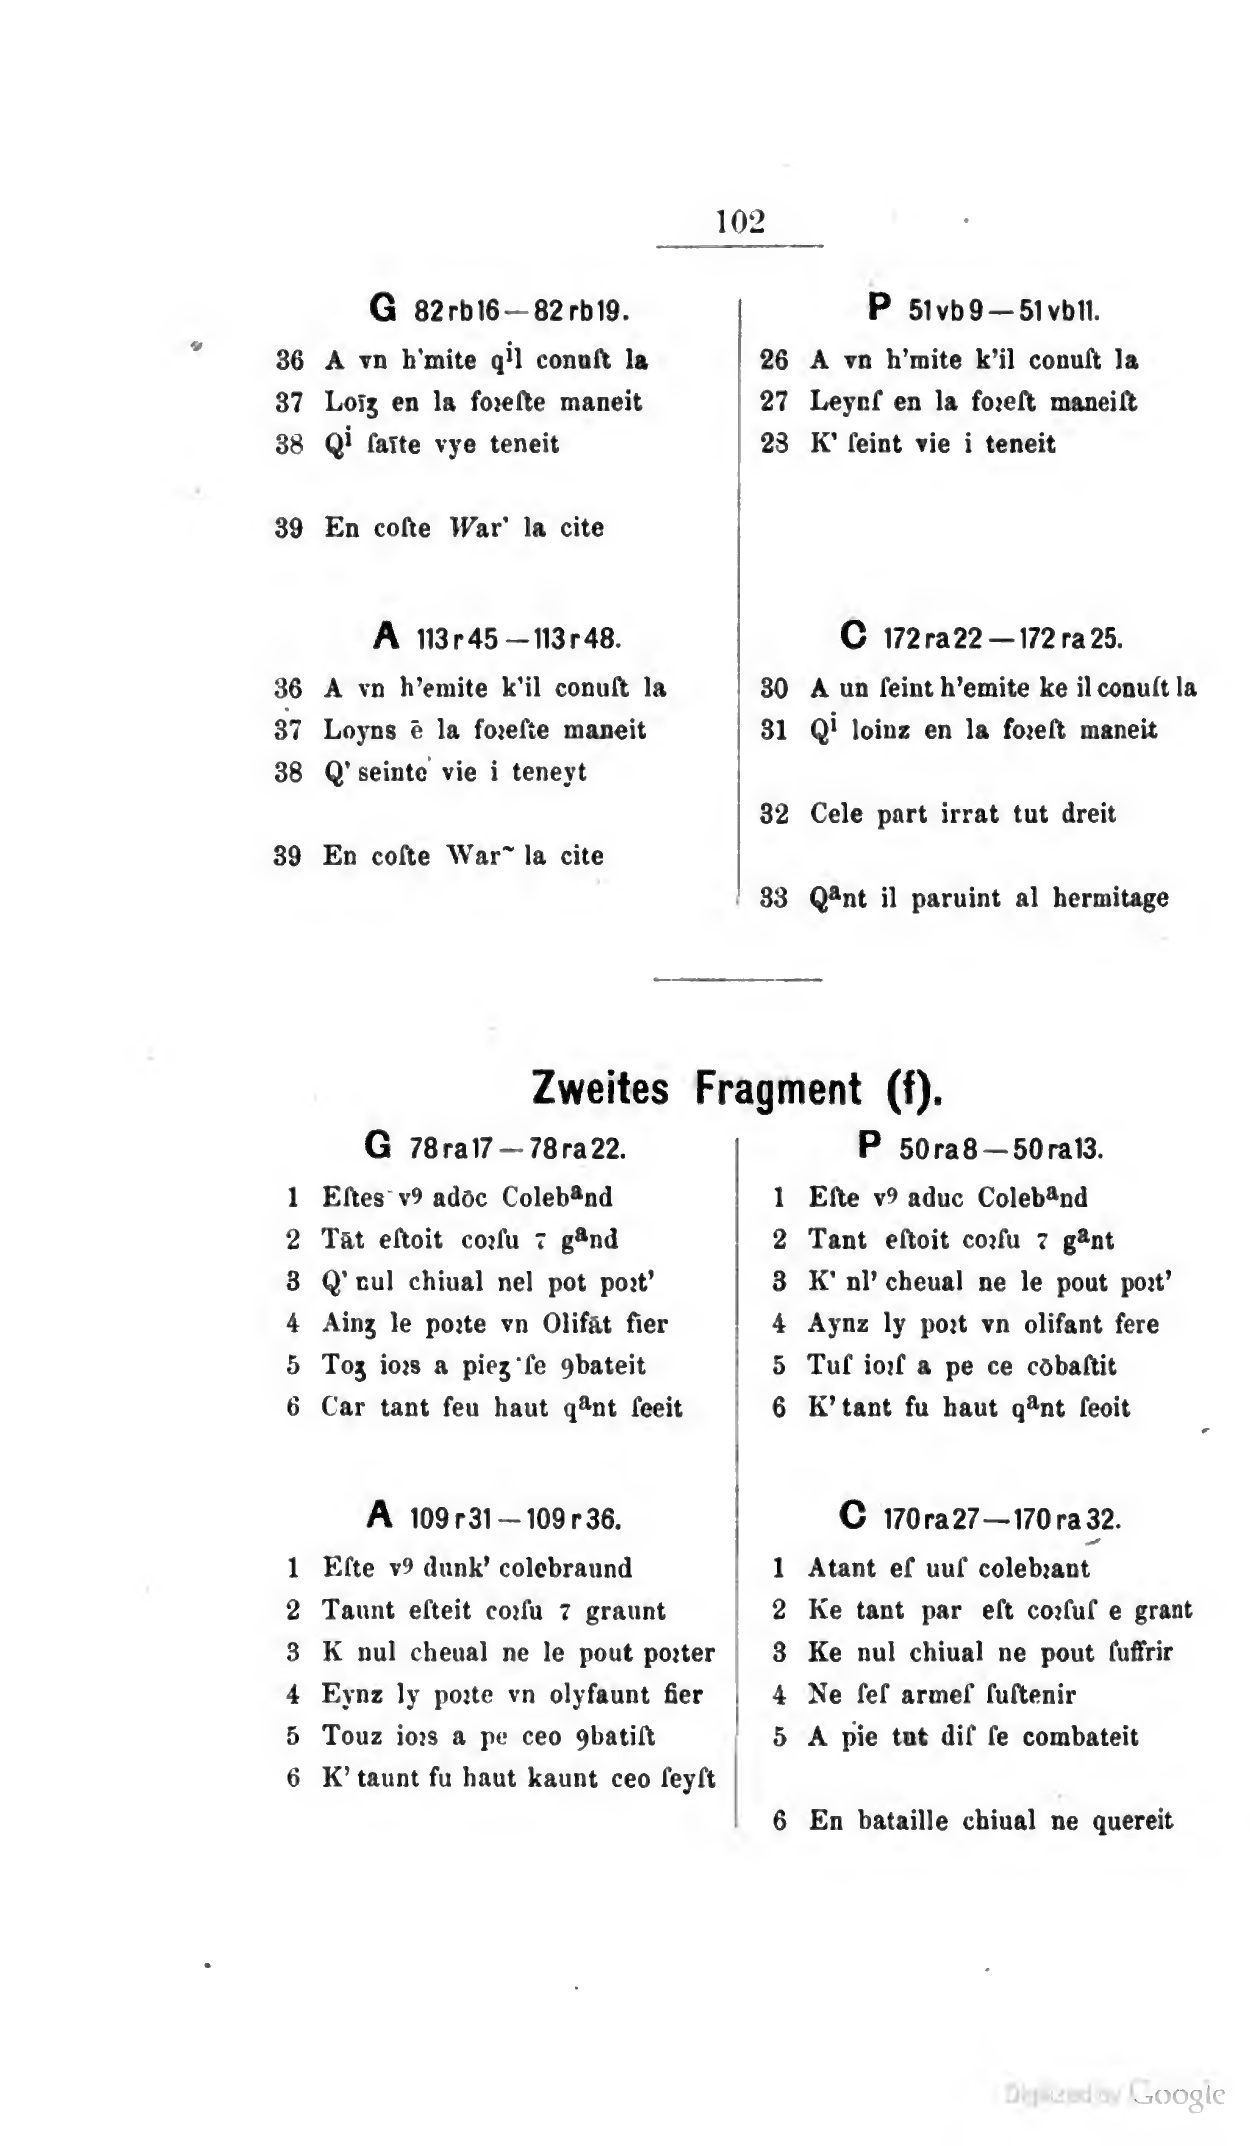 102
G 82rb16—82rb19.
36 A vn h'mite qⁱl conuſt la
37 Loīʒ en la foꝛeſte maneit
38 Qⁱ ſaīte vye teneit
39 En coſte War' la cite
P 51vb9—51vb11.
26 A vn h'mite k'il conuſt la
27 Leynſ en la foꝛeſt maneiſt
28 K' ſeint vie i teneit
A 113r45—113r48.
36 A vn h'emite k'il conuſt la
37 Loyns ē la foꝛeſte maneit
38 Q' seinte vie i teneyt
39 En coſte War~ la cite
C 172ra22—172ra25.
30 A un ſeint h'emite ke il conuſt la
31 Qⁱ loinz en la foꝛeſt maneit
32 Cele part irrat tut dreit
33 Qᵃnt il paruint al hermitage
Zweites Fragment (f).
G 78ra17—78ra22.
1 Eſtes vꝰ adōc Colebᵃnd
2 Tāt eſtoit coꝛſu ⁊ gᵃnd
3 Q' nul chiual nel pot poꝛt'
4 Ainʒ le poꝛte vn Olifāt fier
5 Toʒ ioꝛs a pieʒ ſe ꝯbateit
6 Car tant feu haut qᵃnt ſeeit
P 50ra8—50ra13.
1 Eſte vꝰ aduc Colebᵃnd
2 Tant eſtoit coꝛſu ⁊ gᵃnt
3 K' nl' cheual ne le pout poꝛt'
4 Aynz ly poꝛt vn olifant fere
5 Tuſ ioꝛſ a pe ce cōbaſtit
6 K' tant fu haut qᵃnt ſeoit
A 109r31—109r36.
1 Eſte vꝰ dunk' colebraund
2 Taunt eſteit coꝛſu ⁊ graunt
3 K nul cheual ne le pout poꝛter
4 Eynz ly poꝛte vn olyfaunt fier
5 Touz ioꝛs a pe ceo ꝯbatiſt
6 K' taunt fu haut kaunt ceo ſeyſt
C 170ra27—170ra32.
1 Atant eſ uuſ colebꝛant
2 Ke tant par eſt coꝛſuſ e grant
3 Ke nul chiual ne pout ſuffrir
4 Ne ſeſ armeſ ſuſtenir
5 A pie tut diſ ſe combateit
6 En bataille chiual ne quereit
Digitized by Google